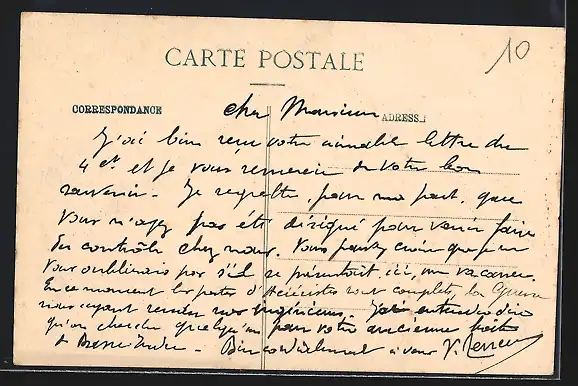 10
CARTE POSTALE
CORRESPONDANCE
ADRESSE
Cher Monsieur
J'ai bien reçu votre aimable lettre du
4 ct et je vous remercie de votre bon
souvenir. Je regrette, pour ma part, que
vous n'ayez pas été désigné pour venir faire
du contrôle chez nous. Vous pouvez croire que je ne
vous oublierais pas s'il se présentait, ici, une vacance.
En ce moment les postes d' sont complets, la Guerre
nous ayant rendu nos ingénieurs. J'ai entendu dire
qu'on cherche quelqu'un pour votre ancienne boîte
à . Bien cordialement à vous